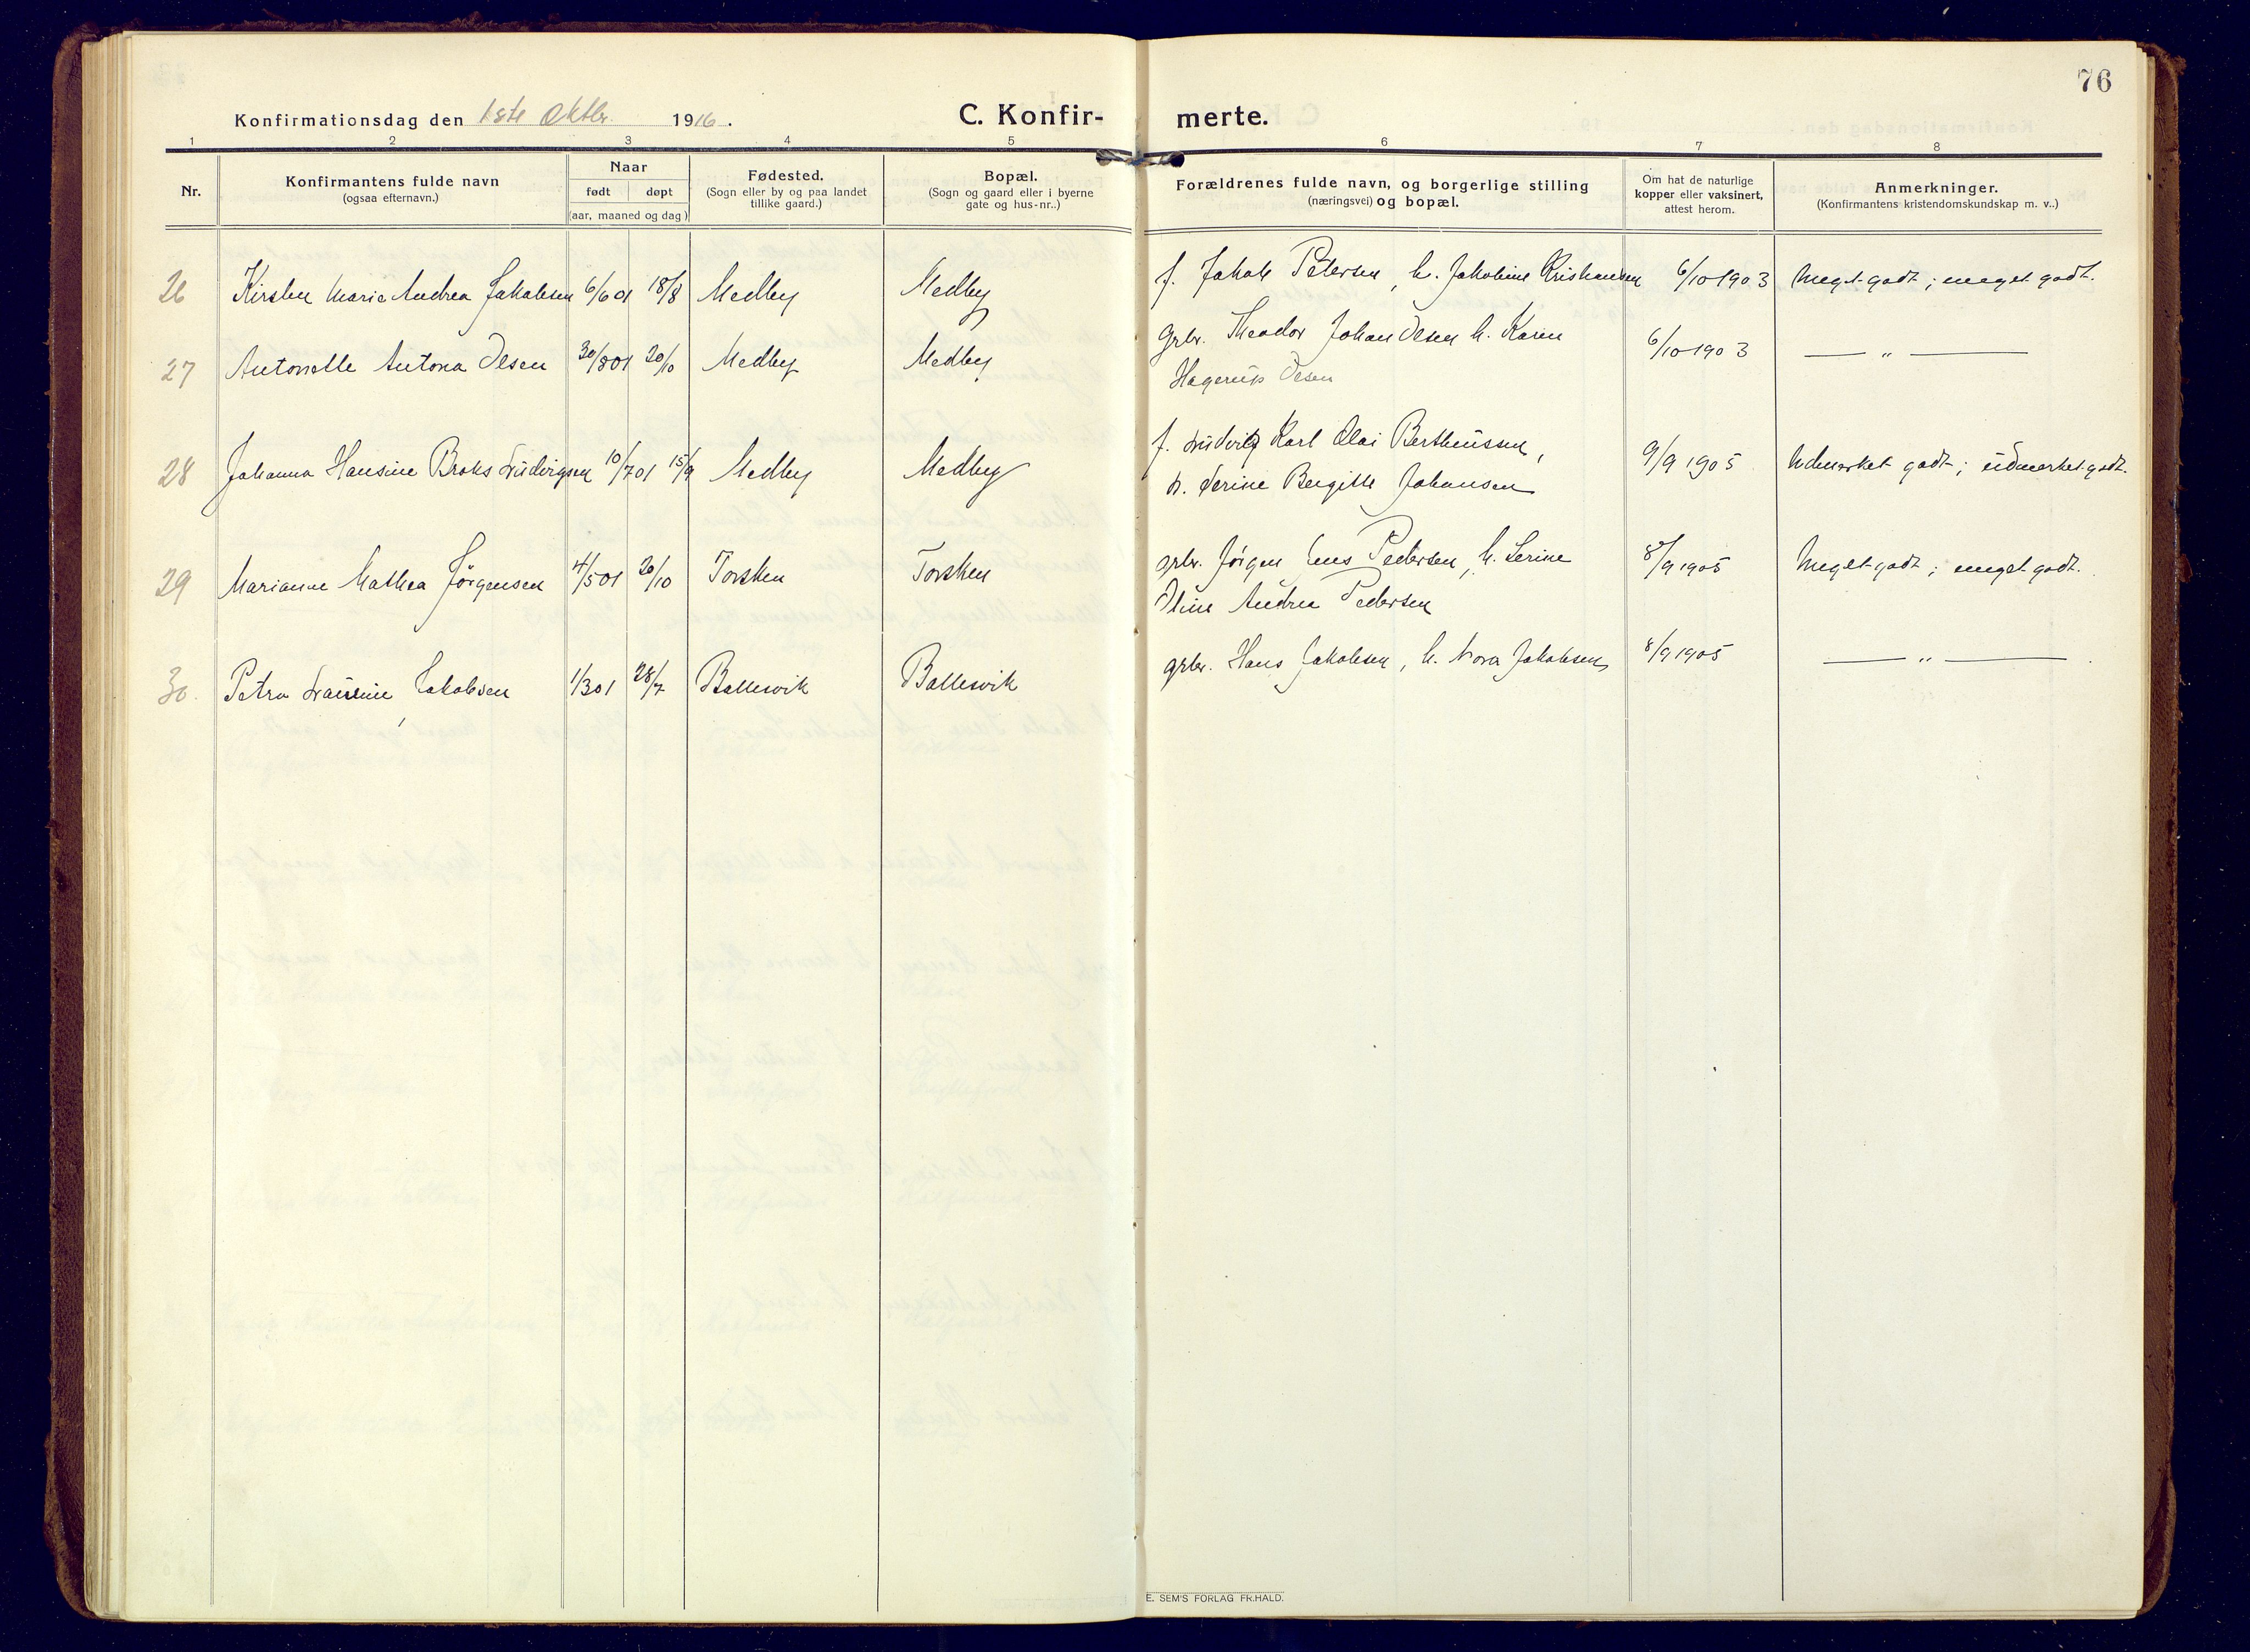 76
Konfirmationsdag den 1ste Oktbr. 1916.
C. Konfir-
merte.
1 2 3 4 5 6 7 8
Nr.
Konfirmantens fulde navn
(ogsaa efternavn.)
Naar
født døpt
(aar, maaned og dag)
Fødested.
(Sogn eller by og paa landet
tillike gaard.)
Bopæl.
(Sogn og gaard eller i byerne
gate og hus-nr..)
Forældrenes fulde navn, og borgerlige stilling
(næringsvei) og bopæl.
Om hat de naturlige
kopper eller vaksinert,
attest herom.
Anmerkninger.
(Konfirmantens kristendomskundskap m. v..)
26 Kirsten Marie Andrea Jakobsen 6/6 01 18/8 Medby Medby f. Jakob Petersen, h. Jakobine Kristiansen 6/10 1903 Meget godt; meget godt.
27 Antonette Antona Olsen 30/8 01 20/10 Medby Medby grbr. Theodor Johan Olsen h. Karen
Hagerup Olsen 6/10 1903 — " —
28 Johanna Hansine Broks Ludvigsen 10/7 01 15/9 Medby Medby f. Ludvig Karl Olai Bertheussen,
h. Serine Bergitte Johansen 9/9 1905 Udmerket godt; udmerket godt.
29 Marianne Mathea Jörgensen 4/5 01 20/10 Torsken Torsken grbr. Jörgen Jens Pedersen, h. Serine
Oline Andrea Pedersen 8/9 1905 Meget godt; meget godt.
30. Petra Laurine Jakobsen 1/3 01 28/7 Ballesvik Ballesvik grbr. Hans Jakobsen, h. Nora Jakobsen 8/9 1905 — " — .
E. SEM'S FORLAG FR.HALD.